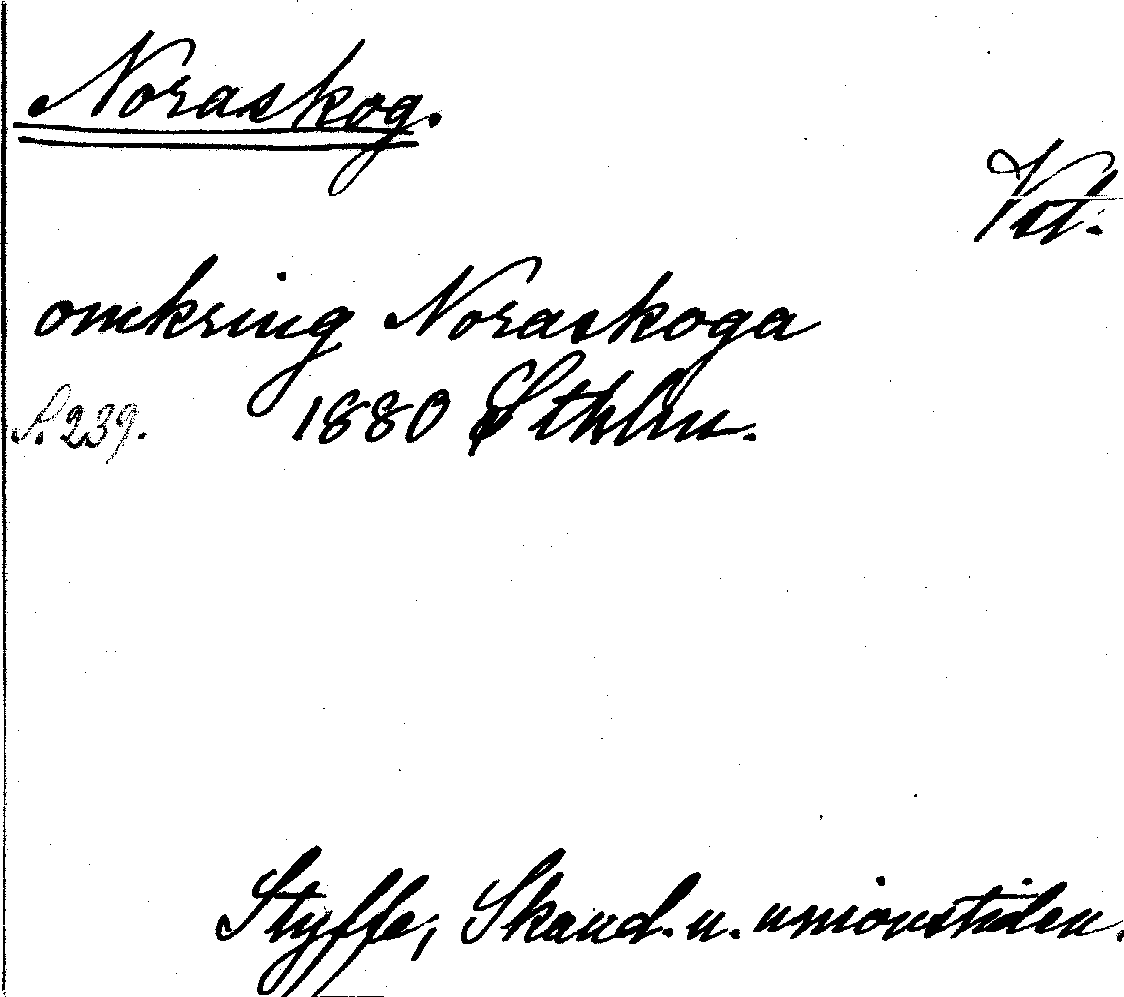 Noraskog.
Vst.
omkring Noraskoga
S. 239. 1880 Sthlm.
Styffe, Skand. u. unionstiden.